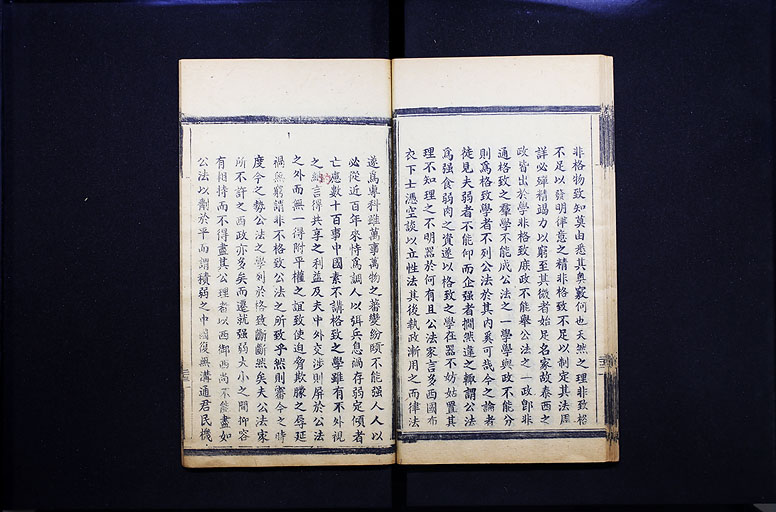 非格物致知莫由悉其奧竅何也天然之理非致格
不足以發明律意之精非格致不足以制定其法周
詳必殫精竭力以窮至其微者始足名家故泰西之
政皆出於學非格致庶政不能舉公法之一政卽非
通格致之羣學不能成公法之一學學與政不能分
則為格致學者不列公法於其內奚可哉今之論者
徒見夫弱者不能仰而企强者㵎然違之輙謂公法
為强食弱肉之資遂以格致之學在器不妨姑置其
理不知理之不明器於何有且公法家言多西國布
衣下士憑空談以立性法其後執政漸用之而律法
遂為專科雖萬事萬物之蕃變紛賾不能强人人以
必從近百年來恃為調人以弭兵息禍存弱定傾者
亡慮數十百事中國素不講格致之學雖有不外視
之言得共享之利益及夫中外交涉則屏於公法
之外而無一得附平權之誼致使迫脅欺朦之辱延
禍無窮謂非不格致公法之所致乎然則審今之時
度今之勢公法之學列於格致斷斷然矣夫公法家
所不許之西政亦多矣而遷就强弱大小之間抑容
有相持而不得盡其公理者以西御西尚不能盡如
公法以劑於平而謂積弱之中國復無溝通君民機